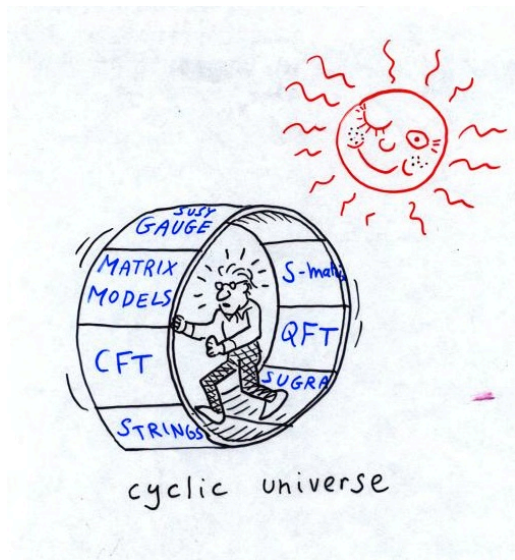 SUSY
GAUGE
MATRIX
MODELS
CFT
STRINGS
S-matrix
QFT
SUGRA
cyclic universe